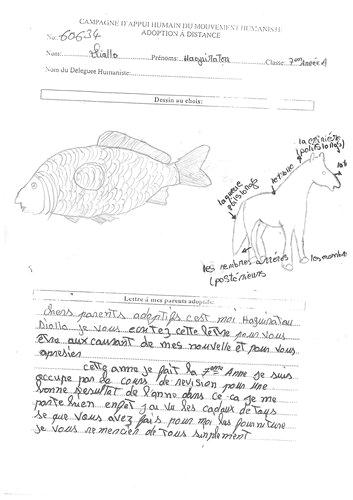 CAMPAGNE D'APPUI HUMAIN DU MOUVEMENT HUMANISTE
ADOPTION A DISTANCE
No: 60634
Nom: Diallo Prénoms: Hazuiratou Classe: 7ème Année A
Nom du Délégué Humaniste:
Dessin au choix:
la crinière
(poils longs)
la tête
le tronc
la queue
poils longs
les membres arrières
(postérieurs)
les membres
Lettre à mes parents adoptifs:
Chers parents adoptifs c'est moi Hazuiratou
Diallo je vous contez cette lettre pour vous
être aux courant de mes nouvelle et pour vous
apresier
cette anne je fait la 7ème Anne je suis
occupe par de cours de revision pour une
bonne resultat de l'anne dans ce ca je me
porte bien enfet j'ai vu les cadaux de tous
se que vous avez fais pour moi les fourniture
je vous remercier de tous simplement